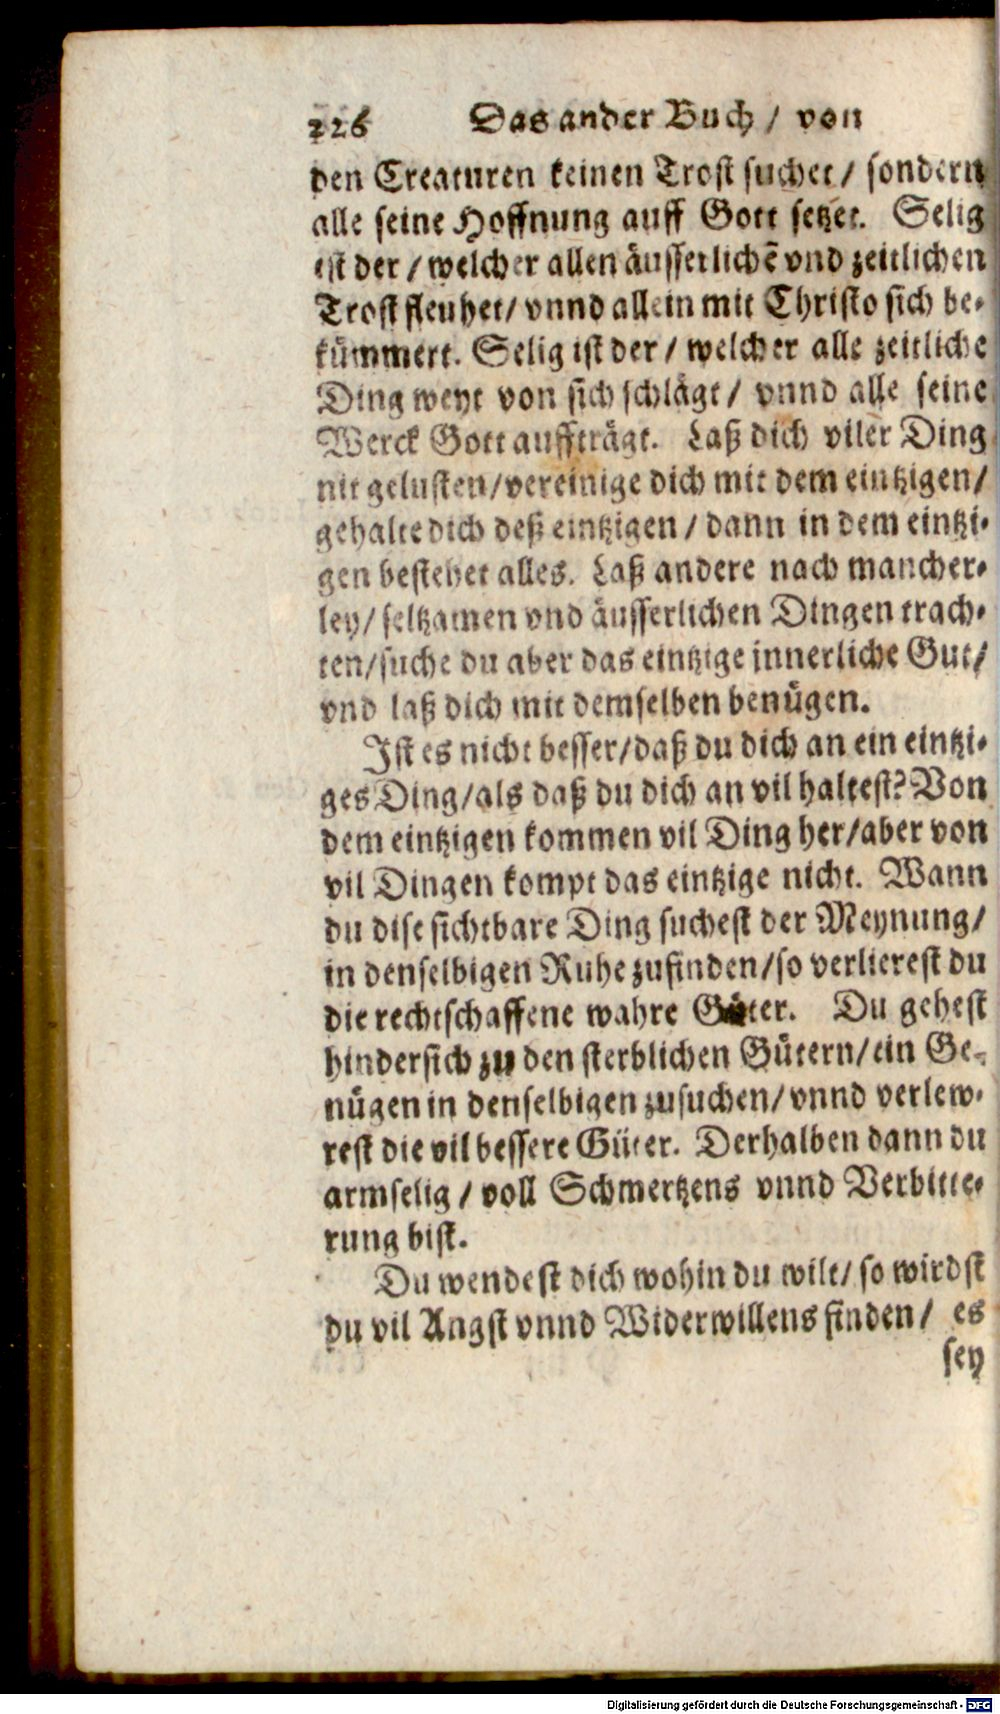 226 Das ander Buch / von
den Creaturen keinen Trost suchet / sondern
alle seine Hoffnung auff Gott setzet. Selig
ist der / welcher allen äusserlichẽ vnd zeitlichen
Trost fleuhet / vnnd allein mit Christo sich be-
kümmert. Selig ist der / welcher alle zeitliche
Ding weyt von sich schlägt / vnnd alle seine
Werck Gott auffträgt. Laß dich viler Ding
nit gelusten / vereinige dich mit dem eintzigen /
gehalte dich deß eintzigen / dann in dem eintzi-
gen bestehet alles. Laß andere nach mancher-
ley / seltzamen vnd äusserlichen Dingen trach-
ten / suche du aber das eintzige innerliche Gut /
vnd laß dich mit demselben benügen.
Ist es nicht besser / daß du dich an ein eintzi-
ges Ding / als daß du dich an vil haltest? Von
dem eintzigen kommen vil Ding her / aber von
vil Dingen kompt das eintzige nicht. Wann
du dise sichtbare Ding suchest der Meynung /
in denselbigen Ruhe zufinden / so verlierest du
die rechtschaffene wahre Güter. Du gehest
hindersich zu den sterblichen Gütern / ein Ge-
nügen in denselbigen zusuchen / vnnd verlew-
rest die vil bessere Güter. Derhalben dann du
armselig / voll Schmertzens vnnd Verbitte-
rung bist.
Du wendest dich wohin du wilt / so wirdst
du vil Angst vnnd Widerwillens finden / es
sey
Digitalisierung gefördert durch die Deutsche Forschungsgemeinschaft - DFG